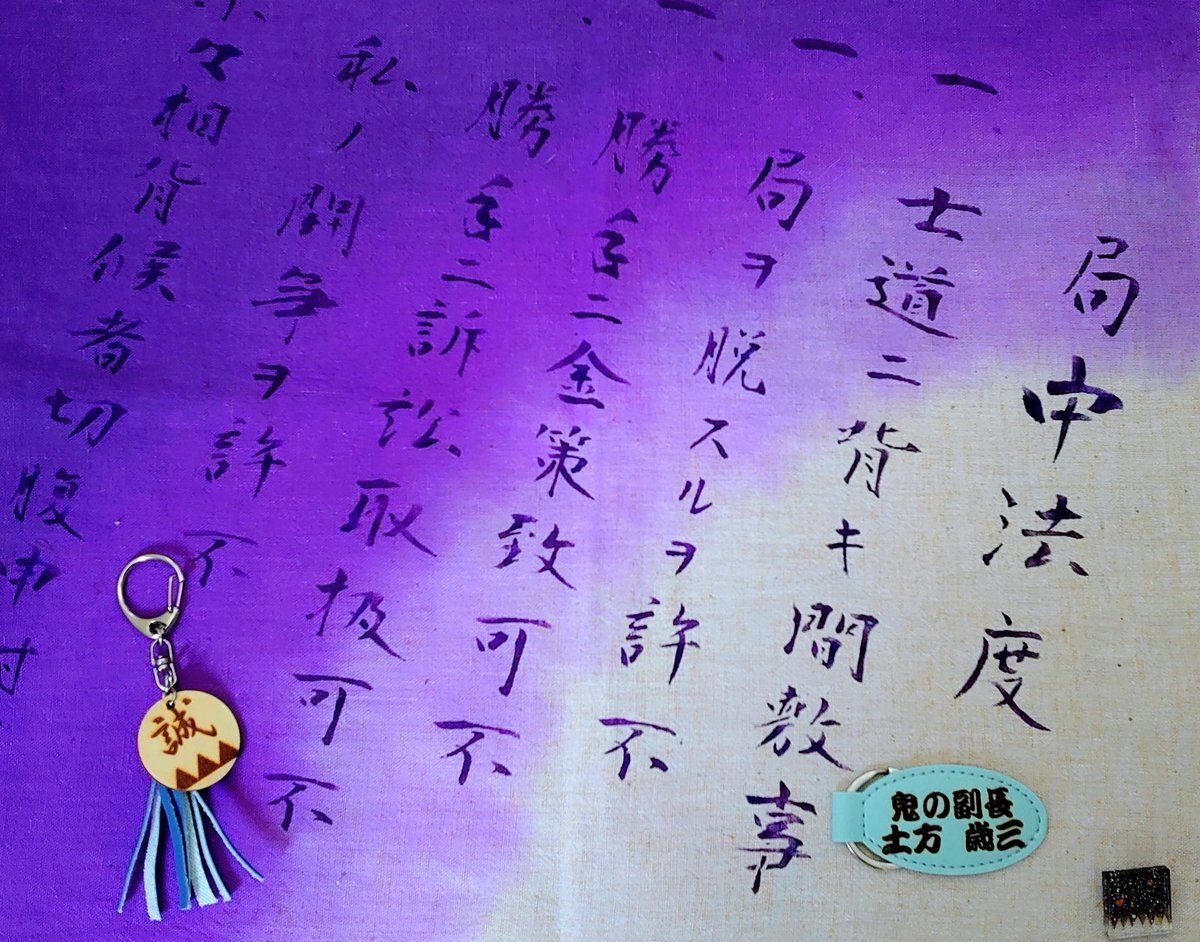 局中法度
一 士道ニ背キ間敷事
一、局ヲ脱スルヲ許不
一、勝手ニ金策致可不
、勝手ニ訴訟取扱可不
私ノ闘争ヲ許不
々相背候者切腹申付
誠
鬼の副長
土方 歳三